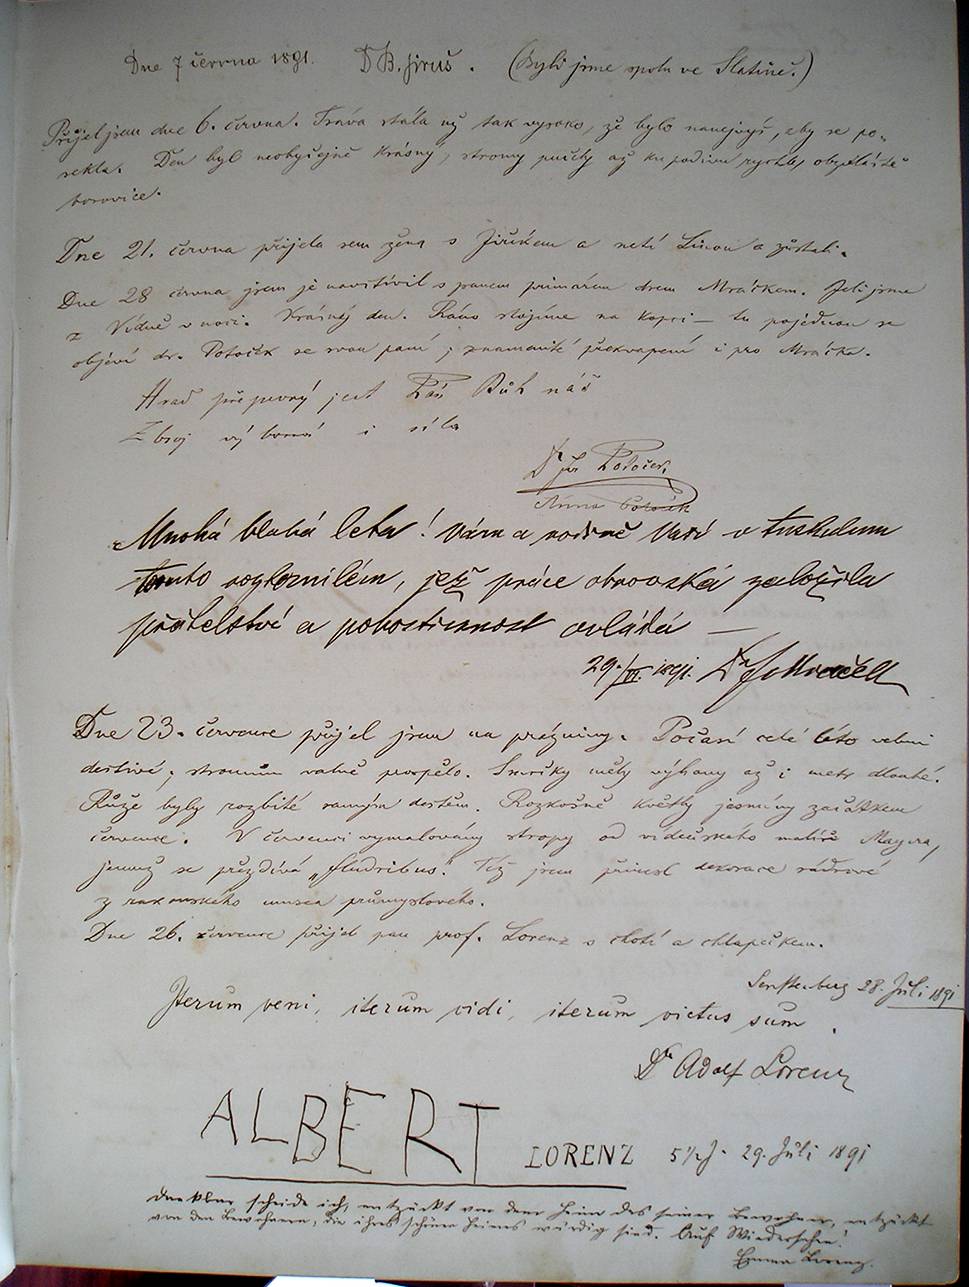 Dne 7 června 1891. Dr B. Jiruš. (Byli jsme spolu ve Slatině.)
Přijel jsem dne 6. června. Tráva stála už tak vysoko, že bylo nanejvýš, aby se po-
sekla. Den byl neobyčejně krásný, stromy pučely až ku podivu rychle, obzvláště
borovice.
Dne 21. června přijela sem žena s Jiříkem a netí Linou a zůstali.
Dne 28 června jsem je navštívil s panem primářem drem Mračkem. Jeli jsme
z Vídně v noci. Krásný den. Ráno stojíme na kopci — tu pojednou se
objeví dr. Potoček se svou paní; znamenité překvapení i pro Mračka.
Hrad přepevný jest Pán Bůh náš
Zbroj výborná i síla
Dr Jos Potoček
Anna Potoček
Mnohá blahá leta! Vám a rodině Vaší v tuskulum
tomto rozkošném, jež práce obrovská založila
přátelství a pohostinnost ovládá —
29./VI. 1891. Dr J Mraček
Dne 23. července přijel jsem na prázniny. Počasí celé léto velmi
deštivé, stromům valně prospělo. Smrčky měly výhony až i metr dlouhé.
Růže byly rozbité samým deštěm. Rozkošně kvetly jasmíny začátkem
července. V červenci vymalovány stropy od vídeňského malíře Mayera,
jemuž se přezdívá „Fludribus". Též jsem přinesl dekorace sádrové
z rakouského musea průmyslového.
Dne 26. července přijel pan prof. Lorenz s chotí a chlapečkem.
Senftenberg 28. Juli 1891
Iterum veni, iterum vidi, iterum victus sum.
Dr Adolf Lorenz
ALBERT LORENZ 5½ J. 29. Juli 1891
Dankbar scheide ich, entzückt von dem Heim des seiner Bewohner, entzückt
von den Bewohnern, die ihres schönen Heims würdig sind. Auf Wiedersehen!
Emma Lorenz.